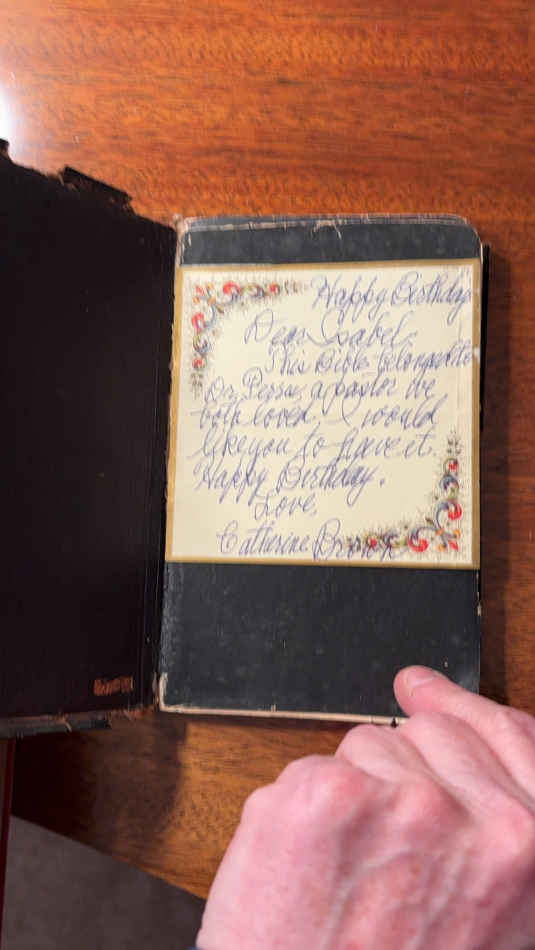 Happy Birthday
Dear Isabel,
This Bible belonged to
Dr. a pastor we
both loved. I would
like you to have it.
Happy Birthday.
Love,
Catherine Brown